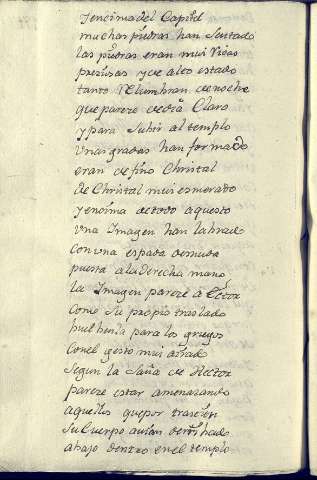 yencima del Capitel
muchas piedras han sentado
las piedras eran mui Ricas
preziosas y de alto estado
tanto Relumbran de noche
que pareze de dia Claro
y para subir al templo
Unas gradas han formado
eran de fino Christal
de Christal mui esmerado
yenzima de todo aquesto
Una Imagen han labrado
con una espada desnuda
puesta a la derecha mano
la Imagen pareze a Ector
como su propio traslado
buelta para los griegos
con el gesto mui airado
segun la saña de Hector
pareze estar amenazando
aquellos que por traicion
su Cuerpo auian
abajo dentro en el templo